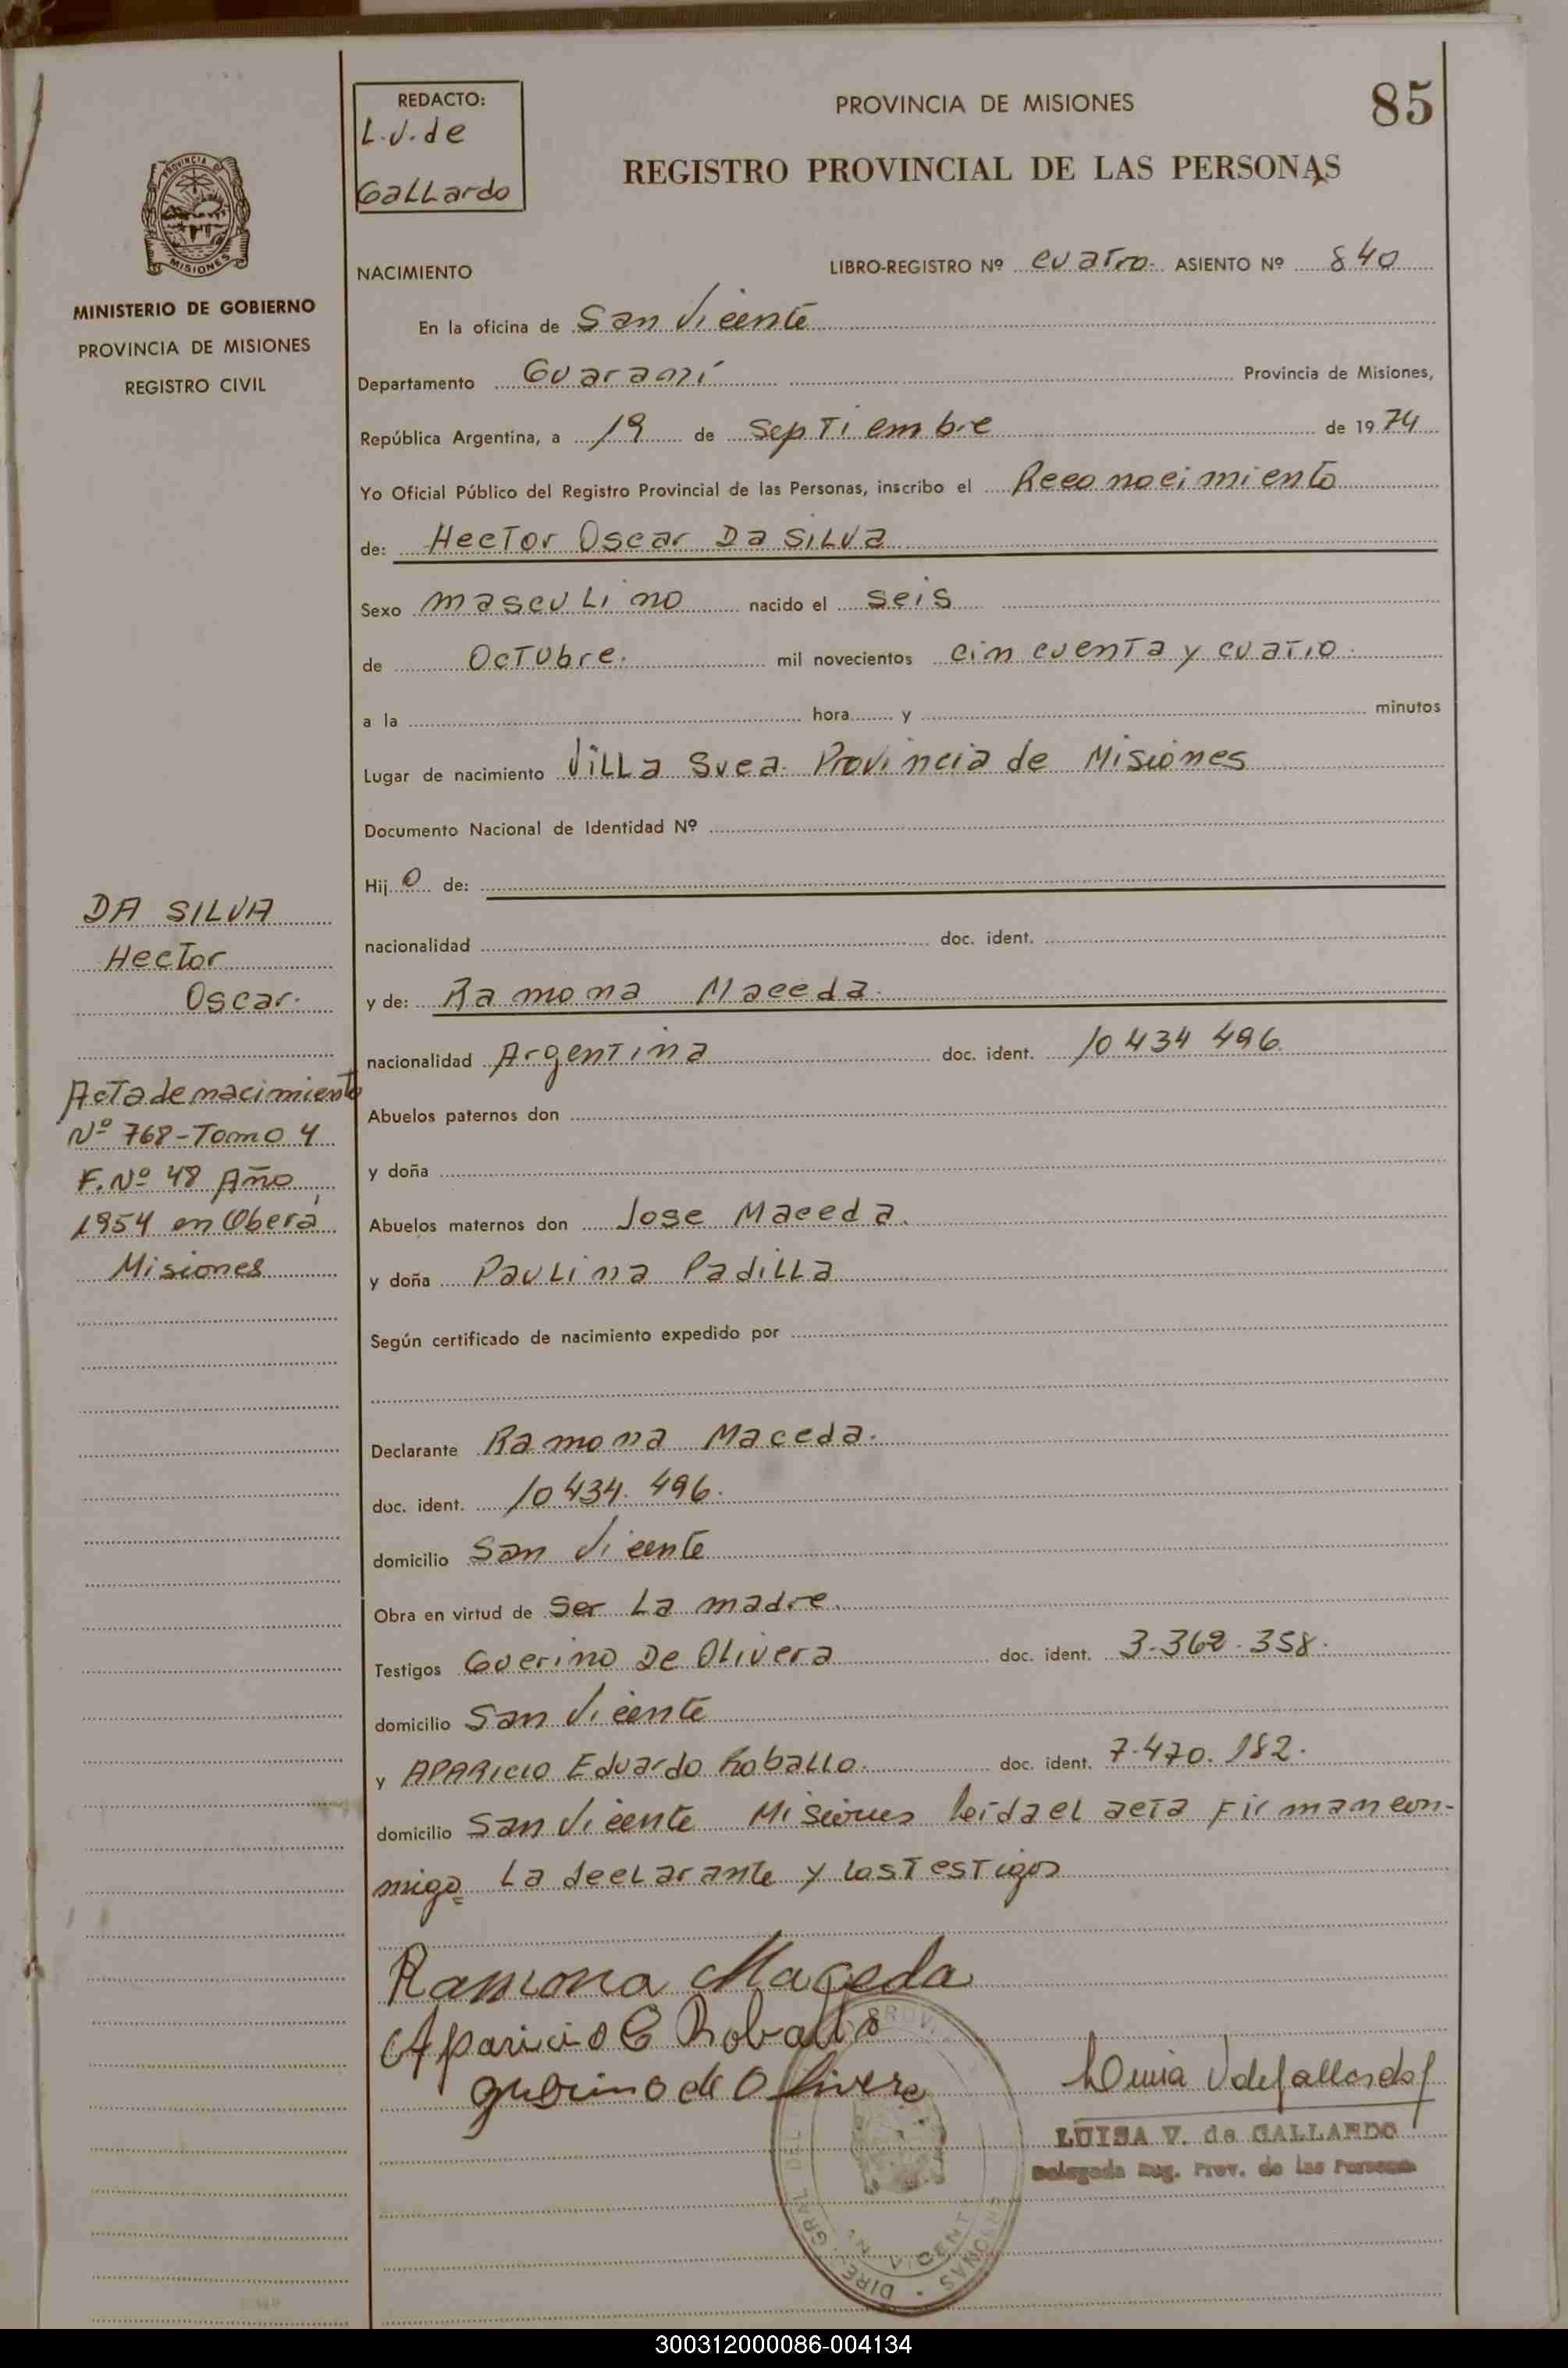 REDACTO:
L.V. de
Gallardo
PROVINCIA DE MISIONES
85
REGISTRO PROVINCIAL DE LAS PERSONAS
PROVINCIA
MISIONES
MINISTERIO DE GOBIERNO
PROVINCIA DE MISIONES
REGISTRO CIVIL
NACIMIENTO
LIBRO-REGISTRO Nº cuatro. ASIENTO Nº 840
En la oficina de San Vicente
Departamento Guaraní Provincia de Misiones,
República Argentina, a 19 de septiembre de 1974
Yo Oficial Público del Registro Provincial de las Personas, inscribo el Reconocimiento
de: Hector Oscar Da Silva
Sexo masculino nacido el seis
de Octubre. mil novecientos cincuenta y cuatro.
a la hora y minutos
Lugar de nacimiento Villa Svea. Provincia de Misiones
Documento Nacional de Identidad Nº
Hijo de:
nacionalidad doc. ident.
y de: Ramona Maceda.
nacionalidad Argentina doc. ident. 10 434 496
Abuelos paternos don
y doña
Abuelos maternos don Jose Maceda.
y doña Paulina Padilla
Según certificado de nacimiento expedido por
Declarante Ramona Maceda.
doc. ident. 10 434. 496.
domicilio San Vicente
Obra en virtud de Ser La madre.
Testigos Guerino De Olivera doc. ident. 3.362.358.
domicilio San Vicente
y APARICIO Eduardo Roballo. doc. ident. 7.470.182.
domicilio San Vicente Misiones leida el acta firman con-
migo La declarante y los Testigos
DA SILVA
Hector
Oscar.
Acta de nacimiento
Nº 768-Tomo 4
F. Nº 48 Año
1954 en Oberá,
Misiones
Ramona Maceda
Aparicio E Roballo
guerino de Olivera
Luisa V de Gallardo
LUISA V. de GALLARDO
Delegada Reg. Prov. de las Personas
300312000086-004134